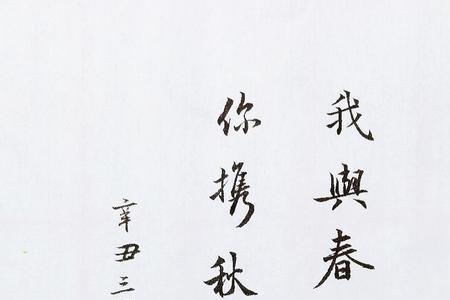 我與春
你攜秋
辛丑三